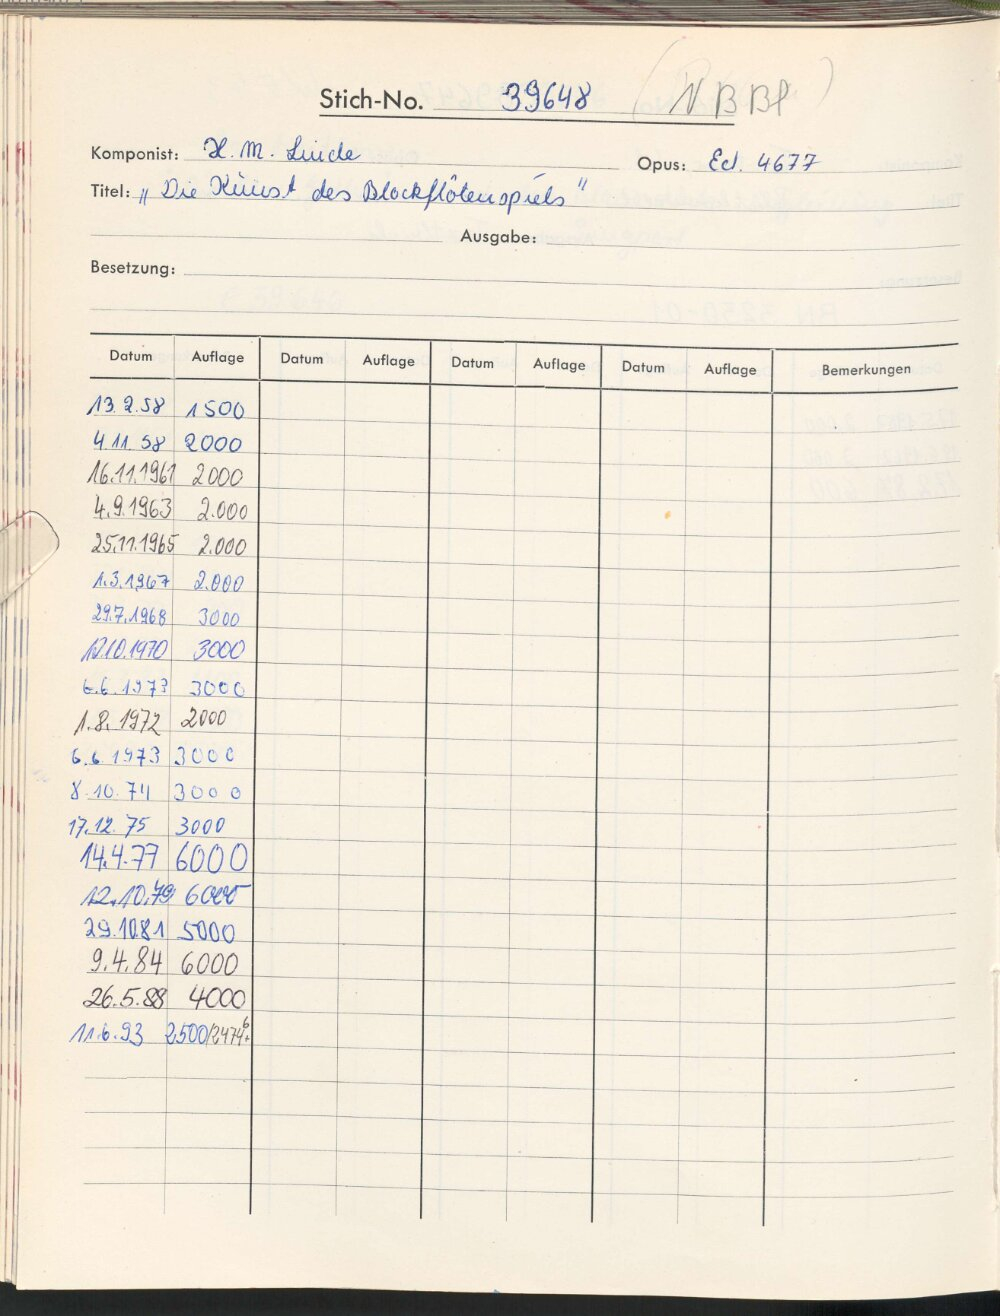 Stich-No. 39648 (N B Bl)
Komponist: H. M. Linde Opus: Ed. 4677
Titel: „Die Kunst des Blockflötenspiels"
Ausgabe:
Besetzung:
Datum Auflage Datum Auflage Datum Auflage Datum Auflage Bemerkungen
13.2.58 1500
4.11.58 2000
16.11.1961 2000
4.9.1963 2.000
25.11.1965 2.000
1.3.1967 2.000
29.7.1968 3000
12.10.1970 3000
6.6.1973 3000
1.8.1972 2000
6.6.1973 3000
8.10.74 3000
17.12.75 3000
14.4.77 6000
12.10.79 6000
29.10.81 5000
9.4.84 6000
26.5.88 4000
11.6.93 2500/2474